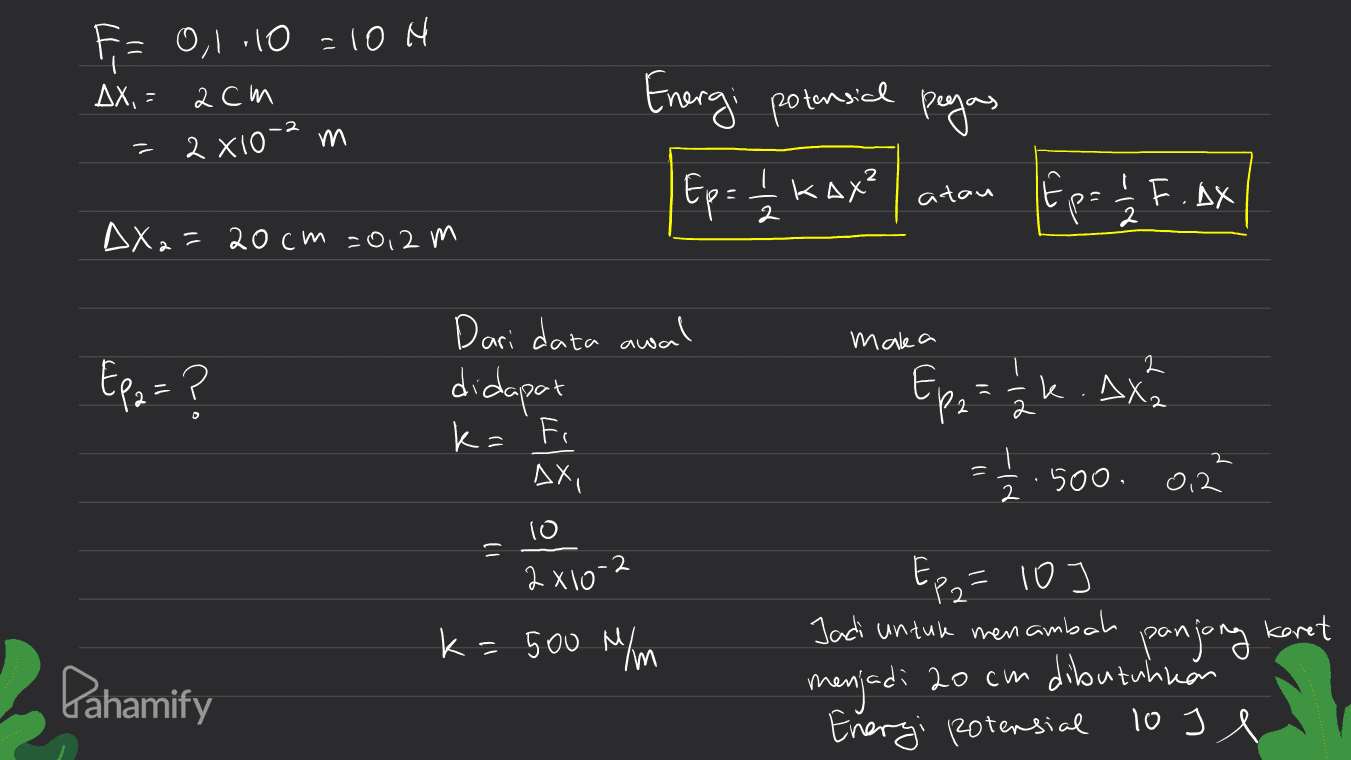 F₁ = 0,1 . 10 = 10 N
ΔX₁ = 2 cm
= 2 x10⁻² m
ΔX₂ = 20 cm = 0,2 m
Energi potensial pegas
Ep = 1/2 k ΔX² atau Ep = 1/2 F . ΔX
Ep₂ = ?
Dari data awal
didapat
k = F₁/ΔX₁
= 10/2 x10⁻²
k = 500 N/m
maka
Ep₂ = 1/2 k . ΔX₂²
= 1/2 . 500 . 0,2²
Ep₂ = 10 J
Jadi untuk menambah panjang karet
menjadi 20 cm dibutuhkan
Energi potensial 10 J
Pahamify